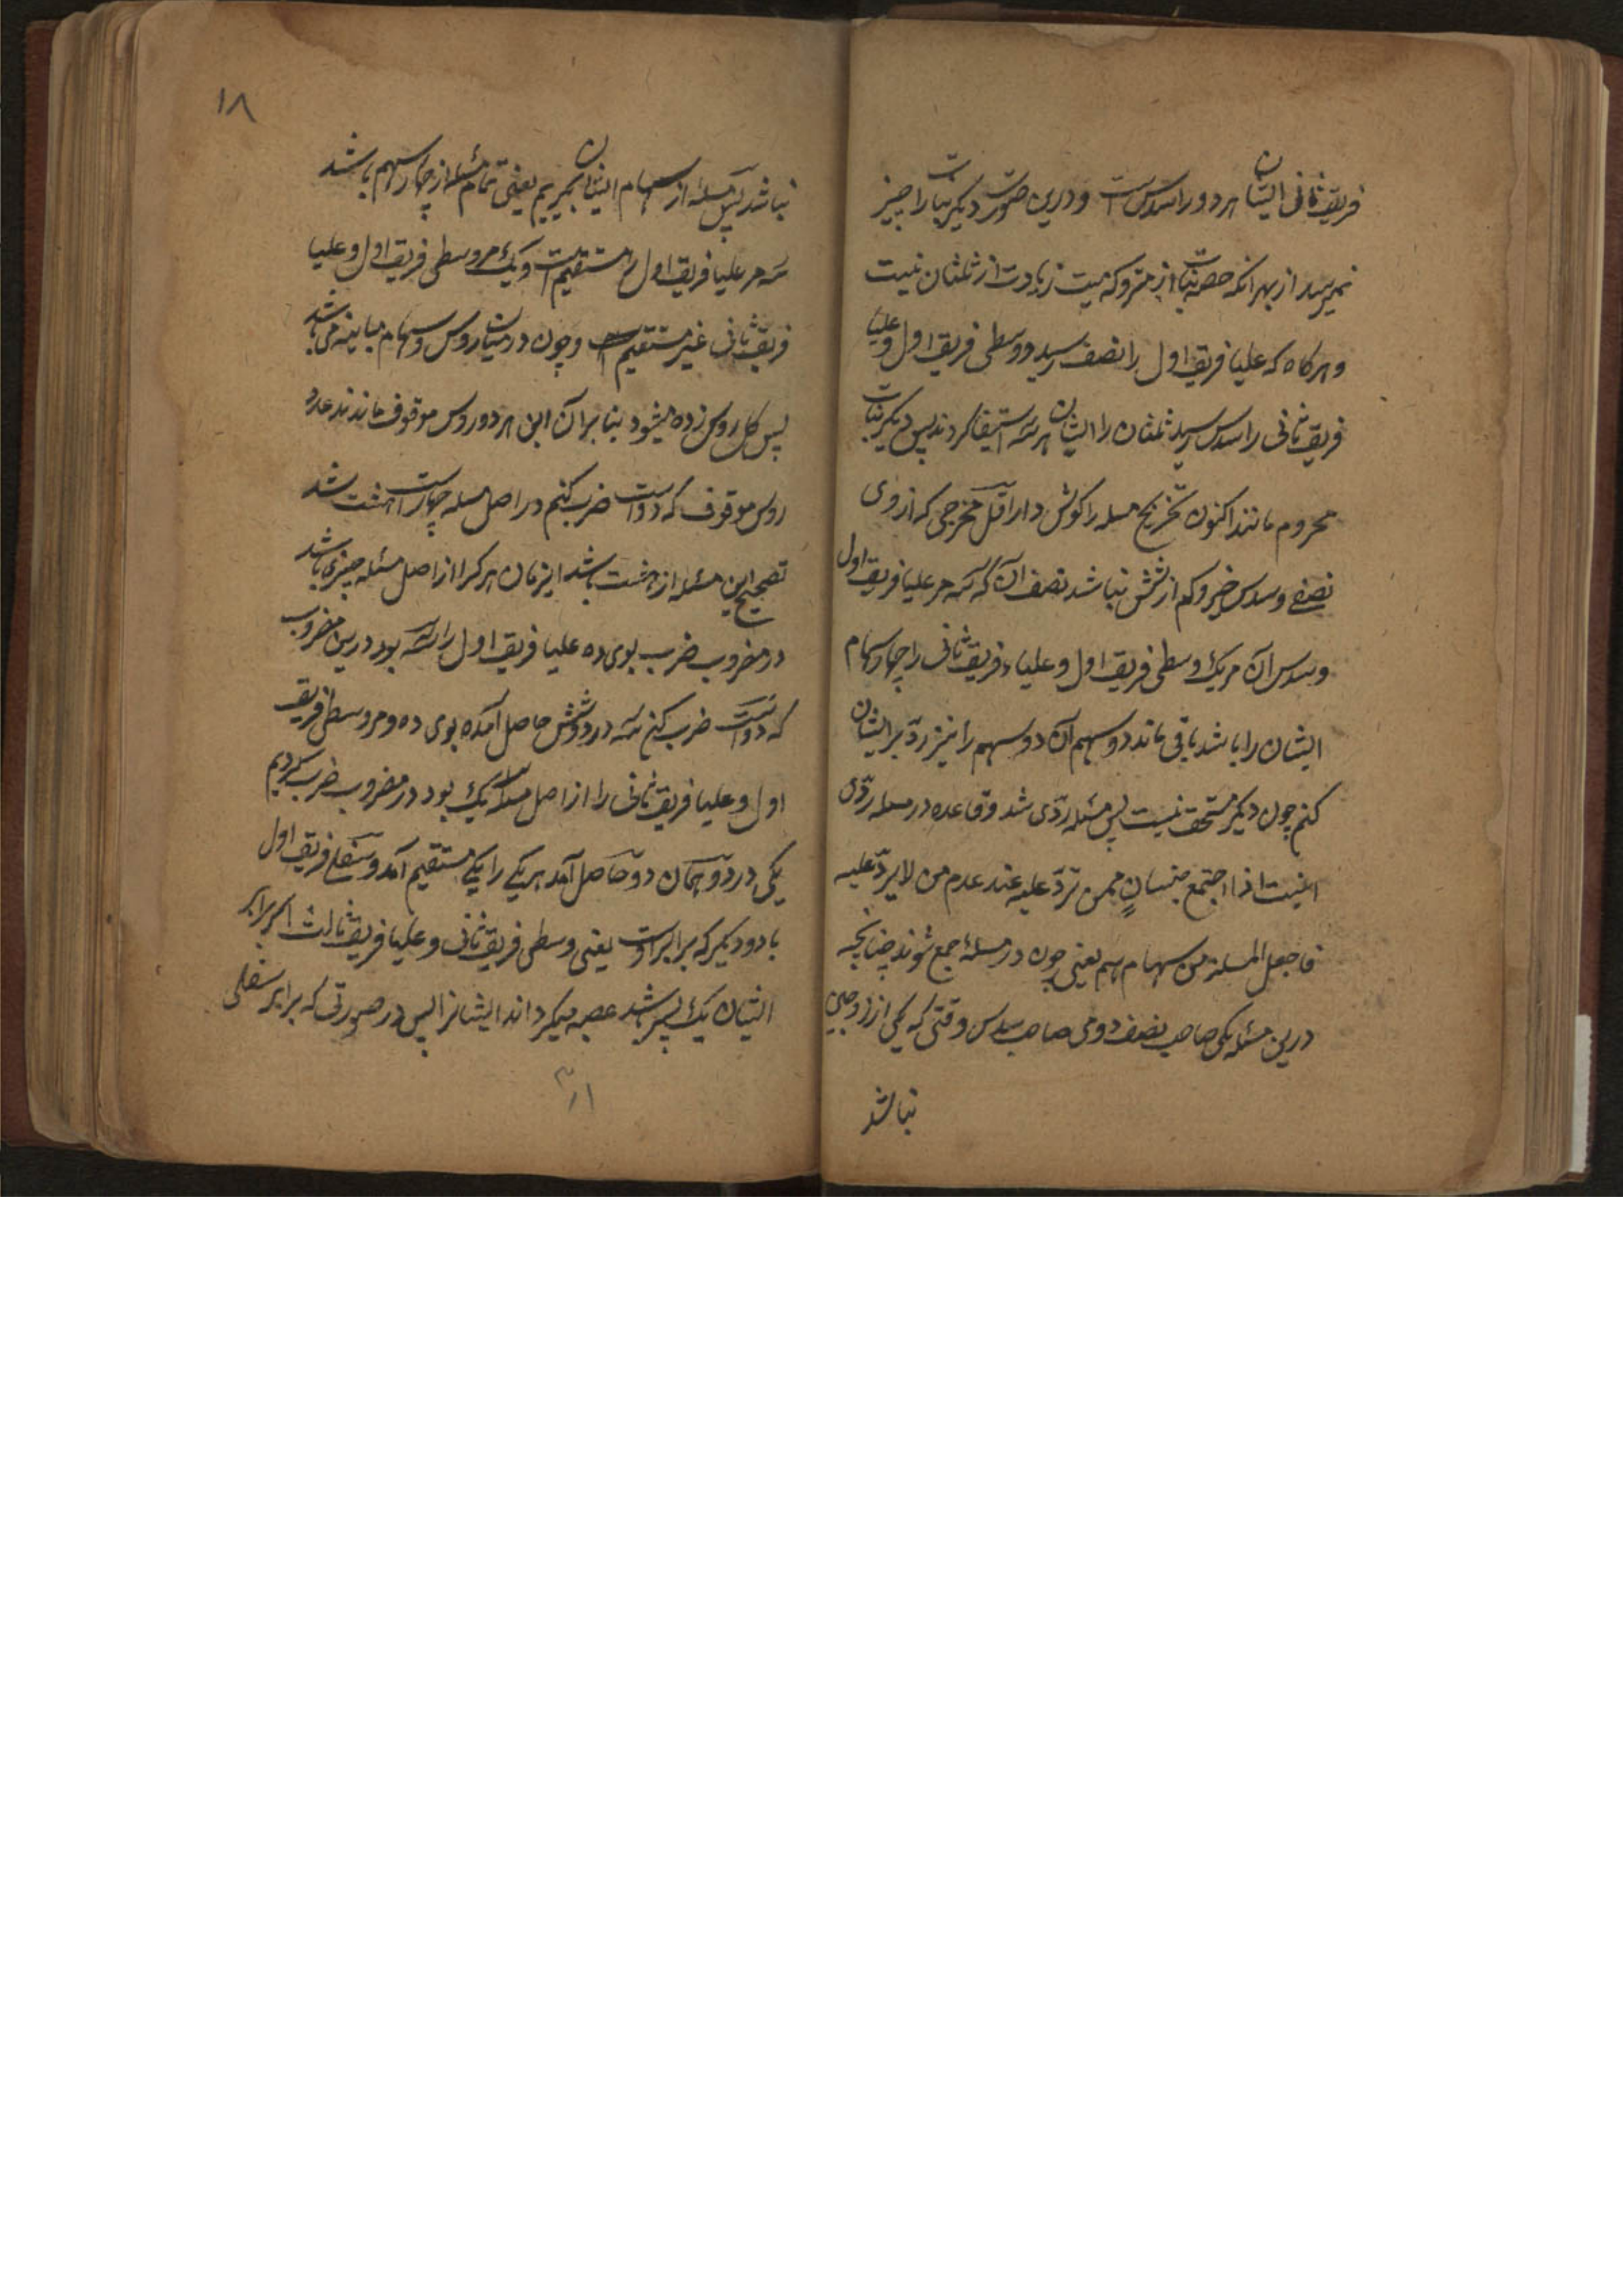 فریق ثانی ایشان هر دو را سدس است و درین صورت دیگر بنات را چیز
نمیرسد از بهر انکه حصه بنات از متروکه میت زیادت از ثلثان نیست
و هرکاه که علیا فریق اول را نصف رسید و وسطی فریق اول و علیا
فریق ثانی را سدس رسید ثلثان را ایشان هر سه استیفا کردند پس دیگر بنات
محروم ماندند اکنون تخریج مسله را کوش دار اقل مخرجی که از وی
نصف و سدس خیزد کم از شش نباشد نصف آن که سه مر علیا فریق اول
و سدس آن مر یک وسطی فریق اول و علیاء فریق ثانی را چهار سهام
ایشان را باشد باقی ماند دو سهم آن دو سهم را نیز رد بر ایشان
کنم چون دیگر مستحق نیست پس مسئله ردی شد و قاعده در مسله ردی
اینست اذا اجتمع جنسان ممن ترد علیه عند عدم من لا یرد علیه
فاجعل المسلة من سهامهم یعنی چون در مسئله جمع شوند چنانچه
درین مسئله یکی صاحب نصف دومی صاحب سدس وقتی که یکی از زوجین
نباشد
۱۸
نباشد پس مسئله از سهام ایشان بگیریم یعنی تمام مسئله از چهار سهم باشد
سه مر علیا فریق اول مستقیم است و یک مر وسطی فریق اول و علیا
فریق ثانی غیر مستقیم است و چون در میان روس و سهام مباینه می باشد
پس کل روس زده میشود بنا بر آن این هر دو روس موقوف ماندند عدد
روس موقوف که دو است ضرب کنم در اصل مسله چهار است هشت شد
تصحیح این مسئله از هشت باشد این زمان هر کرا از اصل مسئله چیزی باشد
در مضروب ضرب بوی ده علیا فریق اول را سه بود درین مضروب
که دو است ضرب کنم سه در دو شش حاصل آمده بوی ده و مر وسطی فریق
اول و علیا فریق ثانی را از اصل مسله یک بود در مضروب ضرب کردیم
یکی در دو همان دو حاصل آمد هر یکی را یکی مستقیم آمد و سفلی فریق اول
با دو دیگر که برابر اوست یعنی وسطی فریق ثانی و علیا فریق ثالث اگر برابر
ایشان یک پسر باشد عصبه میگرداند ایشانرا پس در صورتی که برابر سفلی